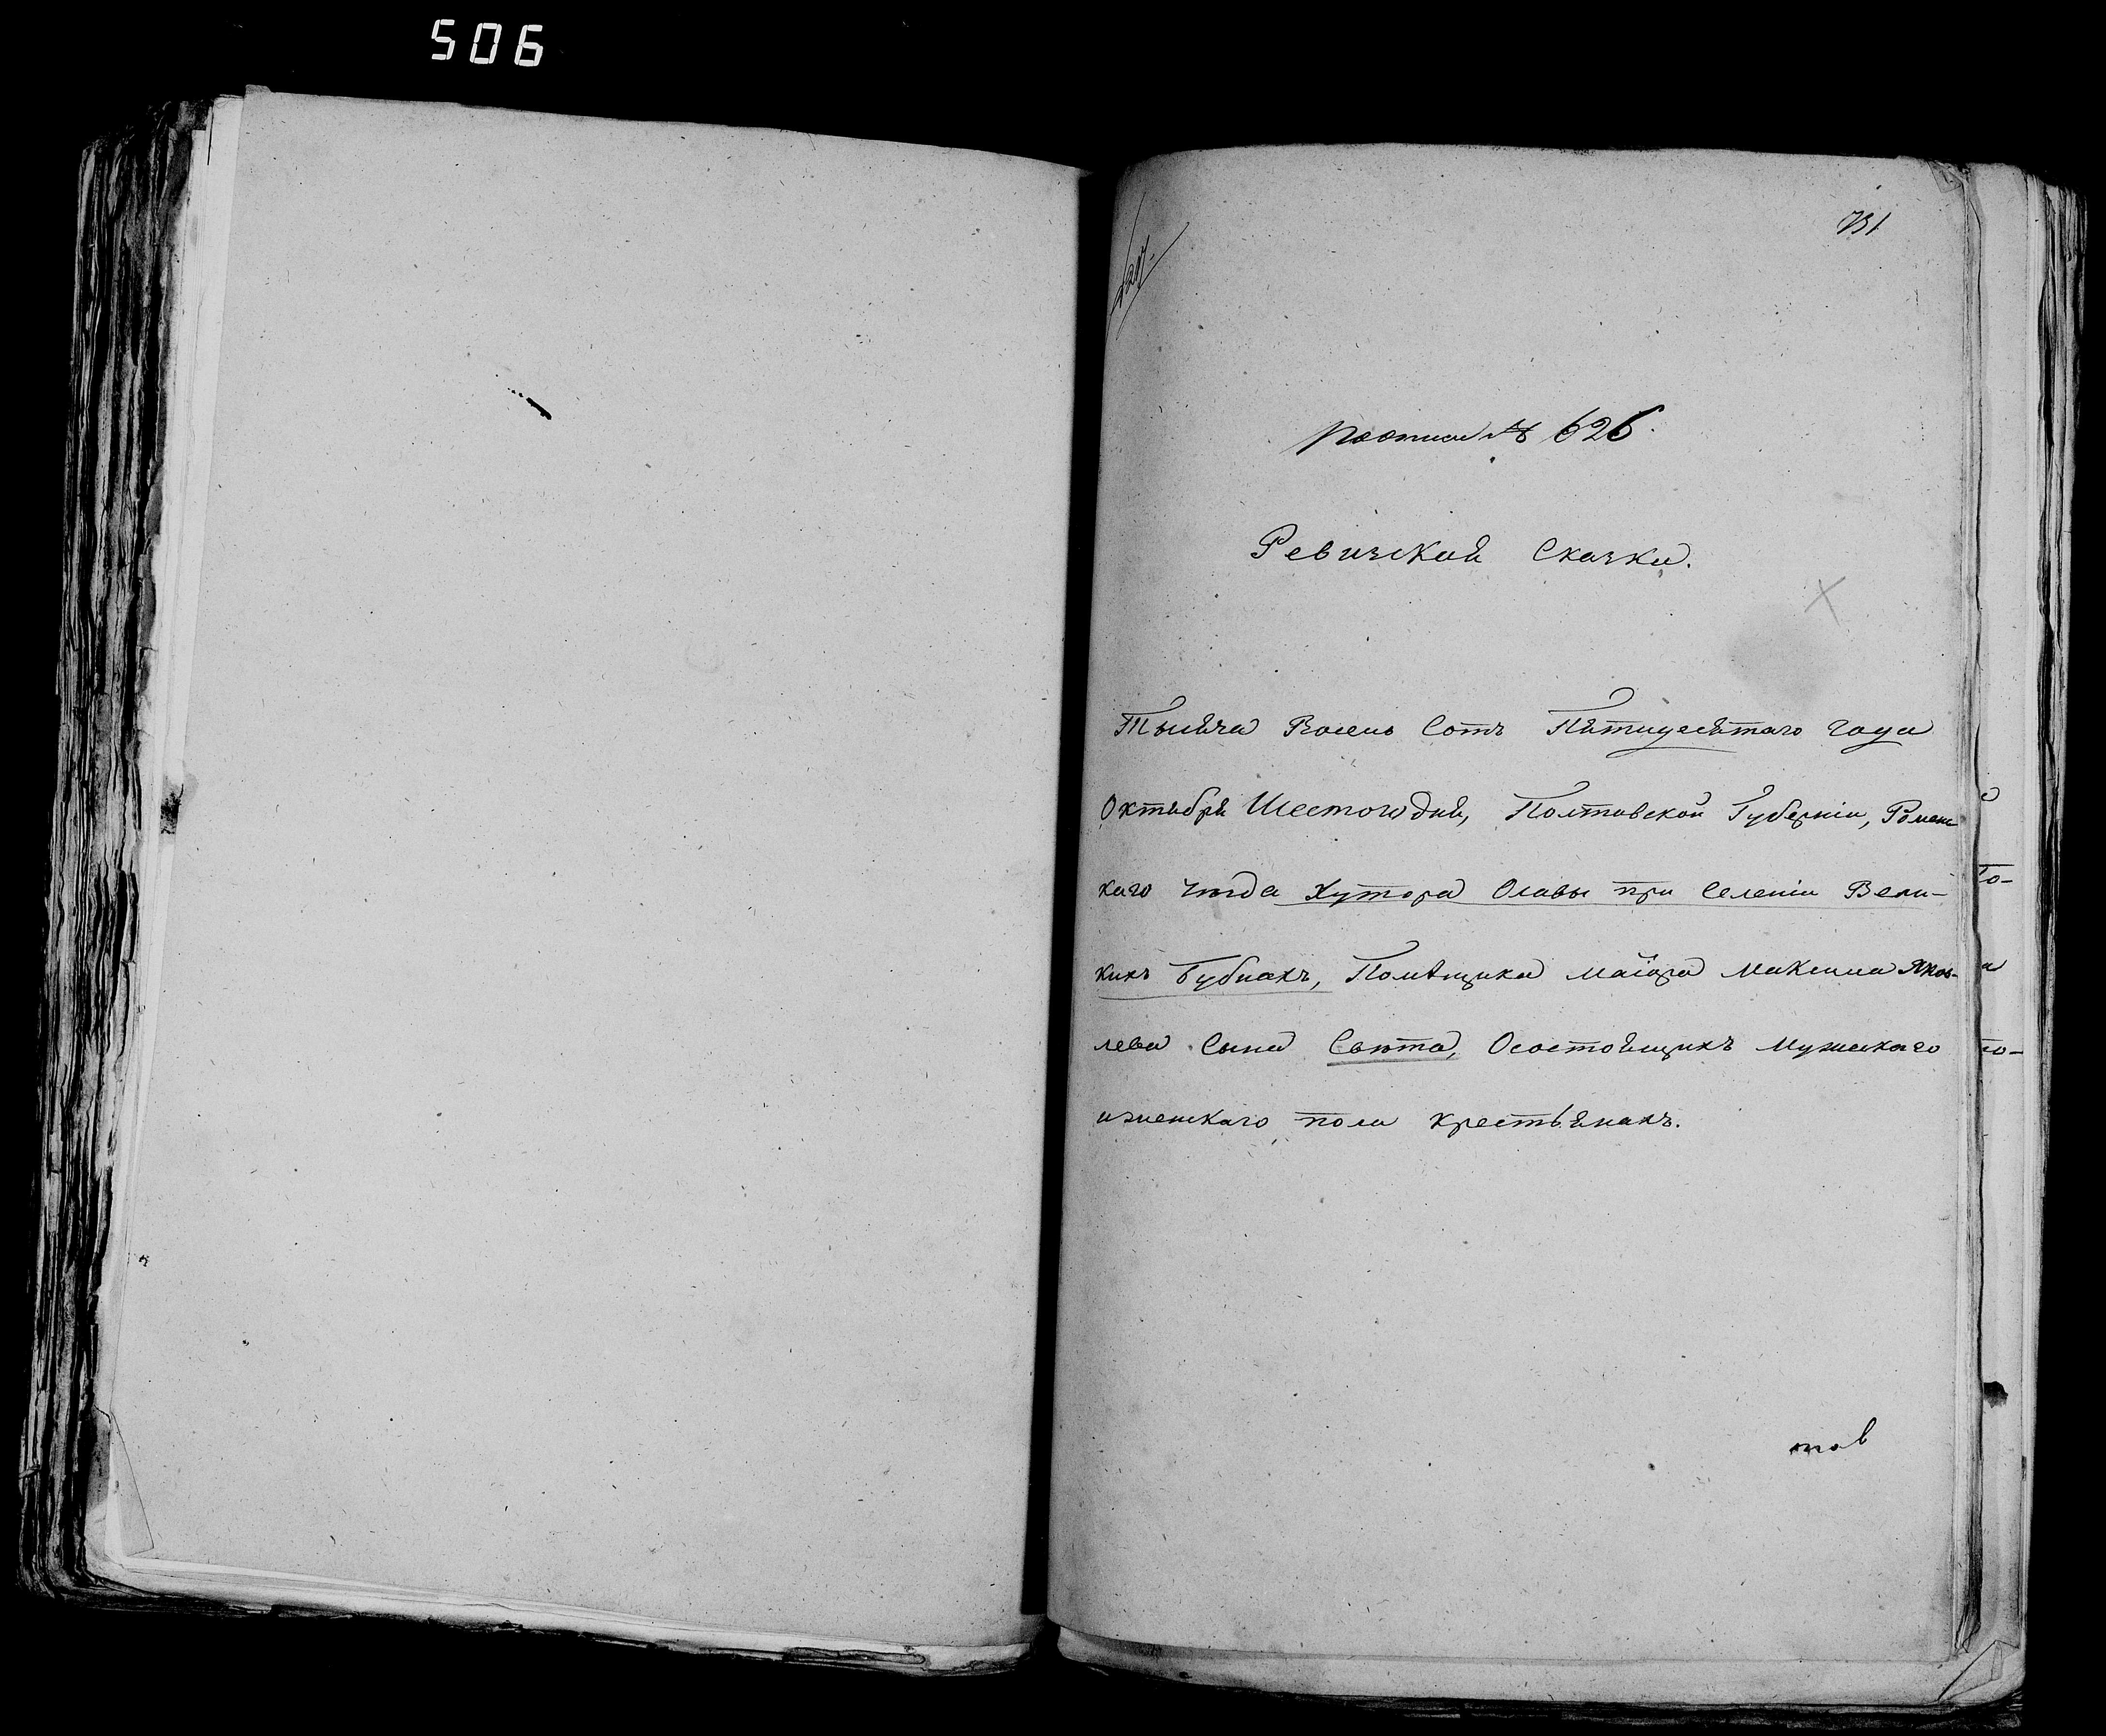 506
731
207.
росписи № 626.
Ревизская Сказка.
Тысяча Восемь Сотъ Пятидесятаго Года
Октября Шестого дня, Полтавской Губерніи, Роменс
каго уѣзда Хутора Олавы при Селеніи Вели-
кихъ Бубнахъ, Помѣщика маіора Максима Яков-
лева Сына Свѣта, О состоящихъ мужескаго
и женскаго пола крестьянахъ.